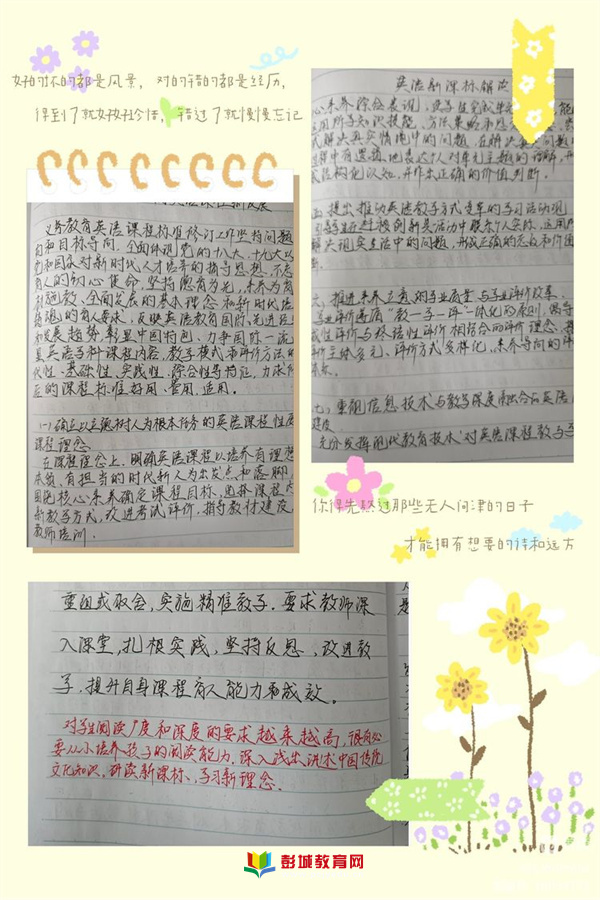 好的坏的都是风景，对的错的都是经历，
得到了就好好珍惜，错过了就慢慢忘记
英语新课标解读
心素养综合表现，
运用所学知识技能、方法策略和思
式解决真实情境中的问题，在解决
过程中有逻辑地表达个人对单元主题的理解，
成结构化认知，并作出正确的价值判断。
五、提出推动英语教学方式变革的学习活动观
联系个人实际，运用所
解决现实生活中的问题，形成正确的态度和价值
六、推进素养立意的学业质量与学业评价改革
学业评价遵循“教—学—评”一体化的原则，倡导
成性评价与终结性评价相结合的评价理念，
价主体多元、评价方式多样化、素养导向的评
七、重视信息技术与教学深度融合在英语
充分发挥现代教育技术对英语课程教与
义务教育英语课程标准修订工作坚持问题
向和目标导向，全面体现党的十八大、十九大以
党和国家对新时代人才培养的指导思想，不忘
育人的初心使命，坚持德育为先、素养为
材施教、全面发展的基本理念和新时代
反映英语教育国际先进经
和发展趋势，彰显中国特色，力争国际一流
显英语学科课程内容、教学模式和评价方法的
代性、基础性、实践性、综合性等特征，力求
正的课程标准好用、管用、适用。
(一)确立以立德树人为根本任务的英语课程性质
课程理念
在课程理念上，明确英语课程以培养有理想
本领、有担当的时代新人为出发点和落脚
围绕核心素养确定课程目标，选择课程内
新教学方式，改进考试评价，指导教材建设
教师培训。
你得先熬过那些无人问津的日子
才能拥有想要的诗和远方
重组或取舍，实施精准教学。要求教师深
入课堂，扎根实践，坚持反思、改进教
学，提升自身课程育人能力和成效。
对学生阅读广度和深度的要求越来越高，很有必
要从小培养孩子的阅读能力，深入浅出讲述中国传统
文化知识，研读新课标、学习新理念。
彭城教育网